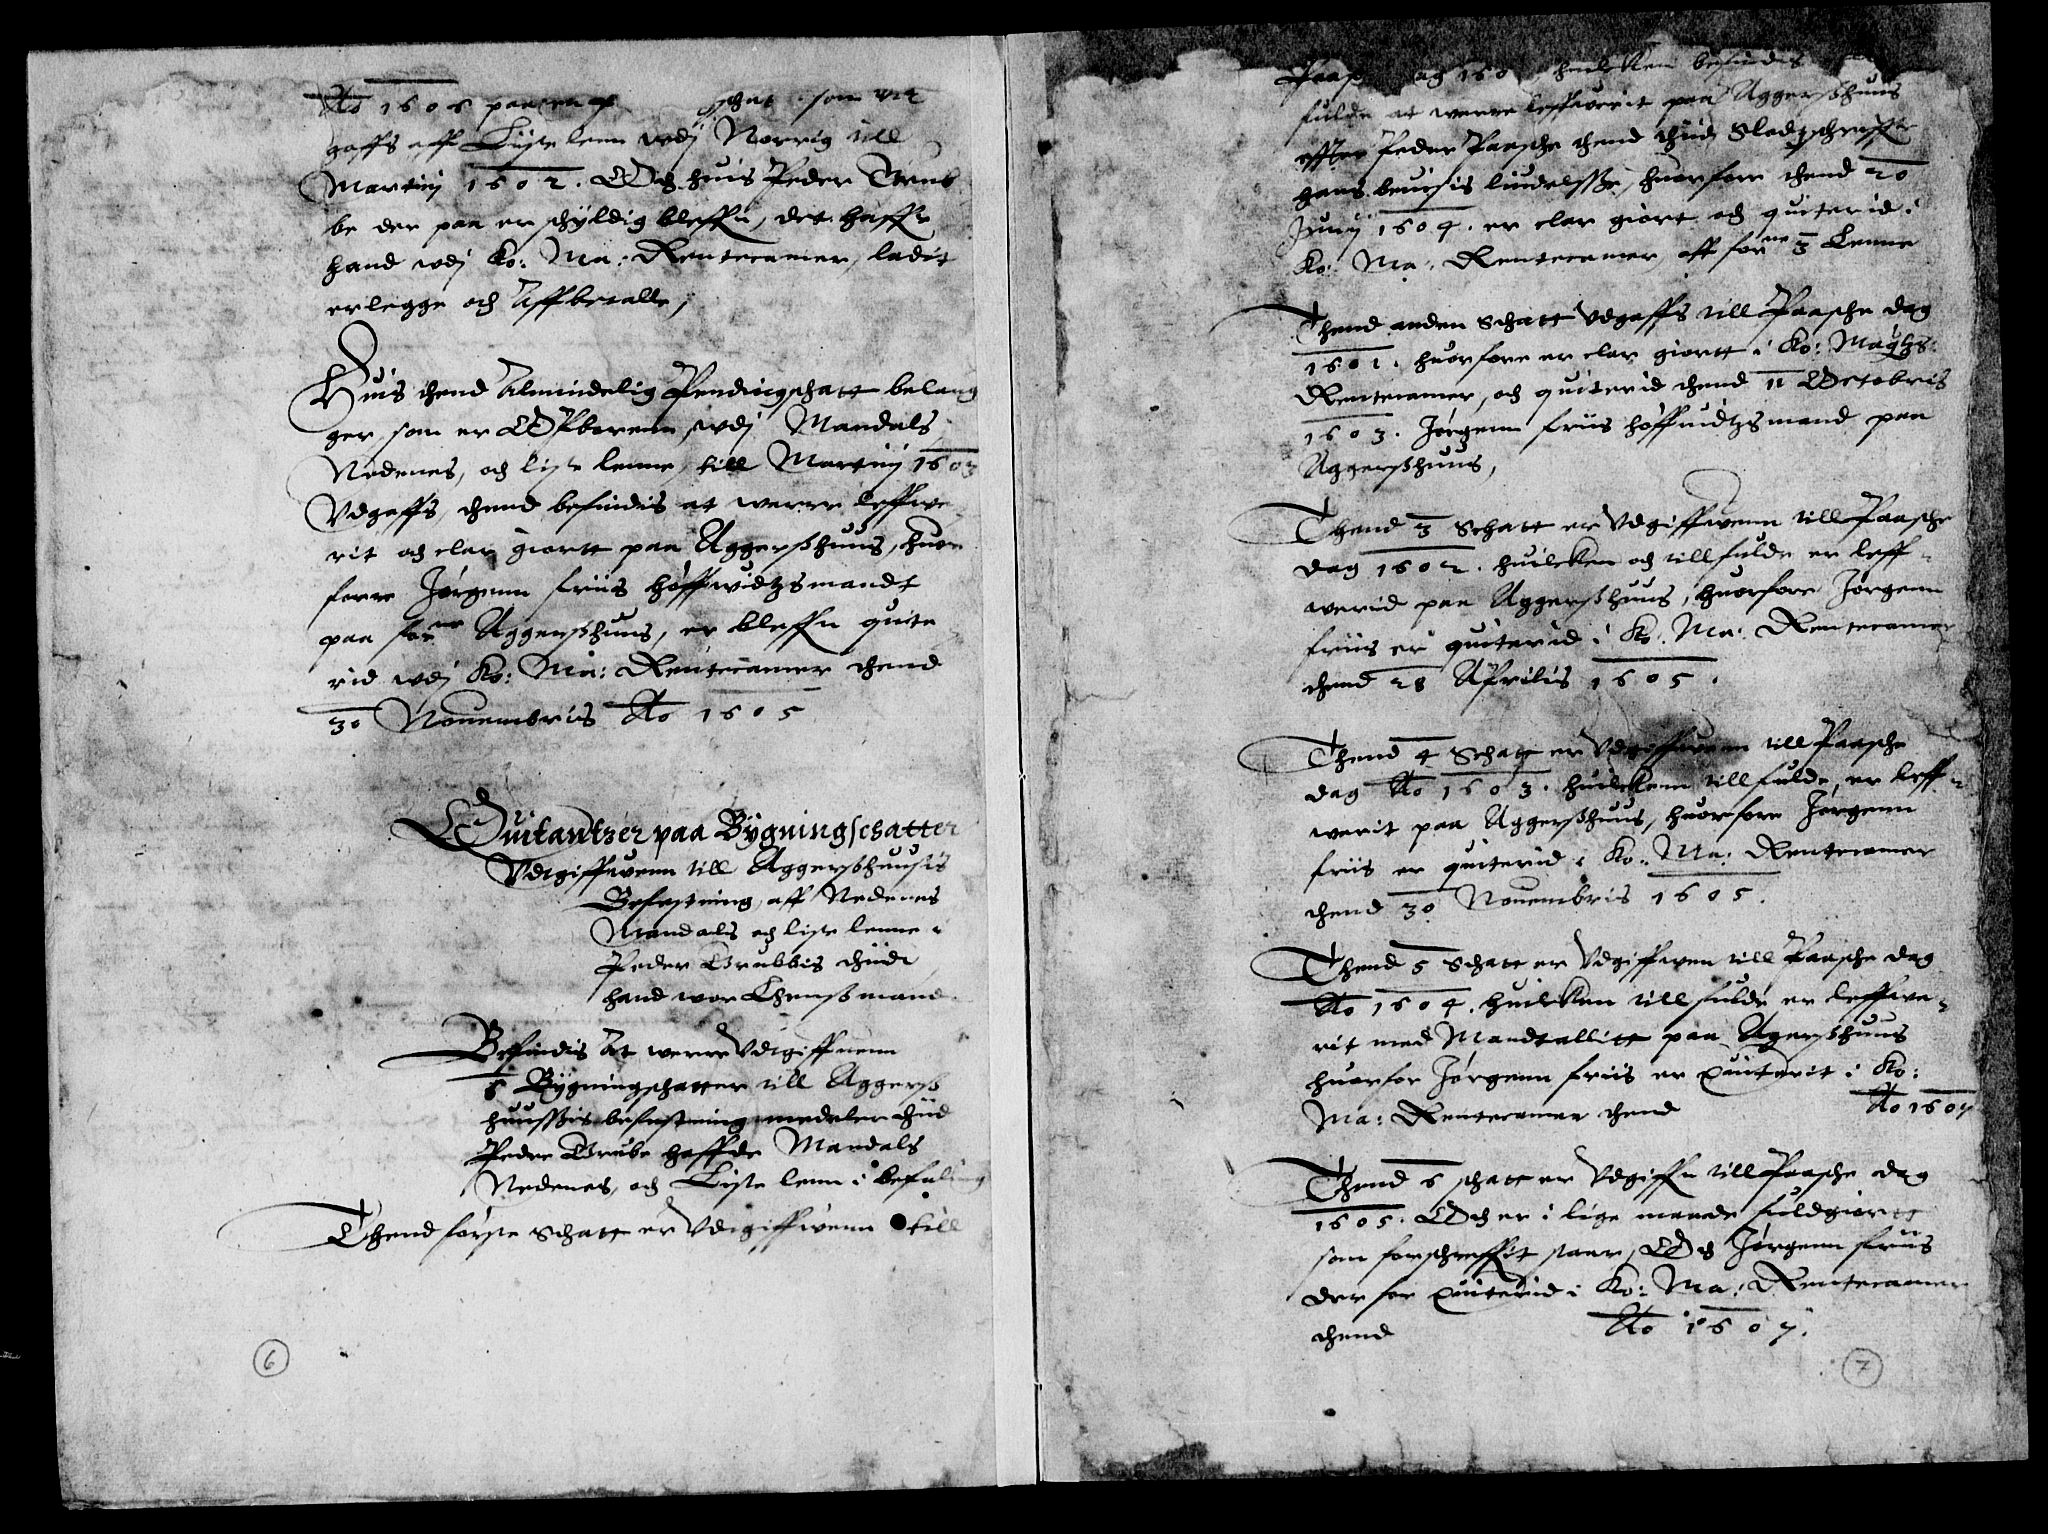 Ao 1606 paa en schat som vt
gaffs aff Liste lenn wdj Norrig till
Martinj 1602. Och huis Peder Grub
be der paa er schyldig bleffn, det haffr
hand wdj Ko: Ma: Rentecamer, ladit
erlegge och Affbetalle,
Huis thend Almindelig Pendingschatt belang
ger som er Opboren, wdj Mandals
Nedenes, och liste lenne, till Martinj 1603
Vdgaffs, thend befindis at werre leffwe
rit och clar giortt paa Aggerßhuus, huor
forre Jørgenn friis høffwidtzsmandt
paa forne Aggerßhuus, er bleffn quite
rid wdj Ko: Ma: Rentecamer thend
30 Nouembris Ao 1605
Quitantzer paa Bygningschatter
Vdgiffwenn till Aggerßhuusis
Befestning, aff Nedenes
Mandals och liste lenne i
Peder Grubbis thiid
hand wor Lhenßmand
Befindis At werre Vdgiffuenn
6 Bygningschatter till Aggerß
huussis befestning medeler thiid
Peder Grube haffde Mandals
Nedenes, och Liste lenn i befaling
Thend første Schatt er Vdgiffwenn till
6
Paasche dag 160 huilcken befindis
fulde at werre leffwerit paa Aggerßhuus
effter Peder Paasche thend thiid Slodzschriffr
hans beuisis liudelsse, huorfore thend 20
Junij 1604. er clar giort och quiterid i
Ko: Ma: Rentecamer aff forne 3 Lenne
Thend anden Schatt Vdgaffs till Paasche dag
1601. huorfore er clar giortt i Ko: Maytzs:
Rentecamer, och quiterid thend 11 Octobris
1603. Jørgenn friis høffuidtzsmand paa
Aggerßhuus,
Thend 3 Schatt er Vdgiffwenn till Paasche
dag 1602. huilcken och till fulde er leff
werid paa Aggerßhuus, huorfore Jørgenn
friis er quiterid i Ko: Ma: Rentecamer
thend 28 Aprilis 1605.
Thend 4 Schatt er Vdgiffwenn till Paasche
dag Ao 1603. huilckenn till fulde er leff
werit paa Aggerßhuus, huorfore Jørgenn
friis er quiterid i Ko: Ma: Rentecamer
thend 30 Nouembris 1605.
Thend 5 Schatt er Vdgiffwen till Paasche dag
Ao 1604. huilcken till fulde er leffwe
rit med Mandtallitt paa Agerßhuus
huorfor Jørgenn friis er Quiterit i Ko:
Ma: Rentecamer thend Ao 1607
Thend 6 schatt er Vdgiffn till Paasche dag
1605. Och er i lige maade fuldgiortt
som forschreffit staar, Och Jørgenn friis
der for Quiterid i Ko: Ma: Rentecamer
thend Ao 1607.
7